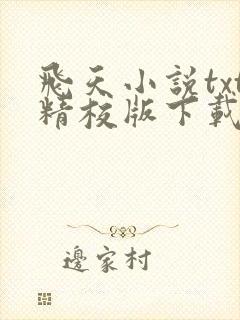 飛天小說txt
精校版下載
邊家村